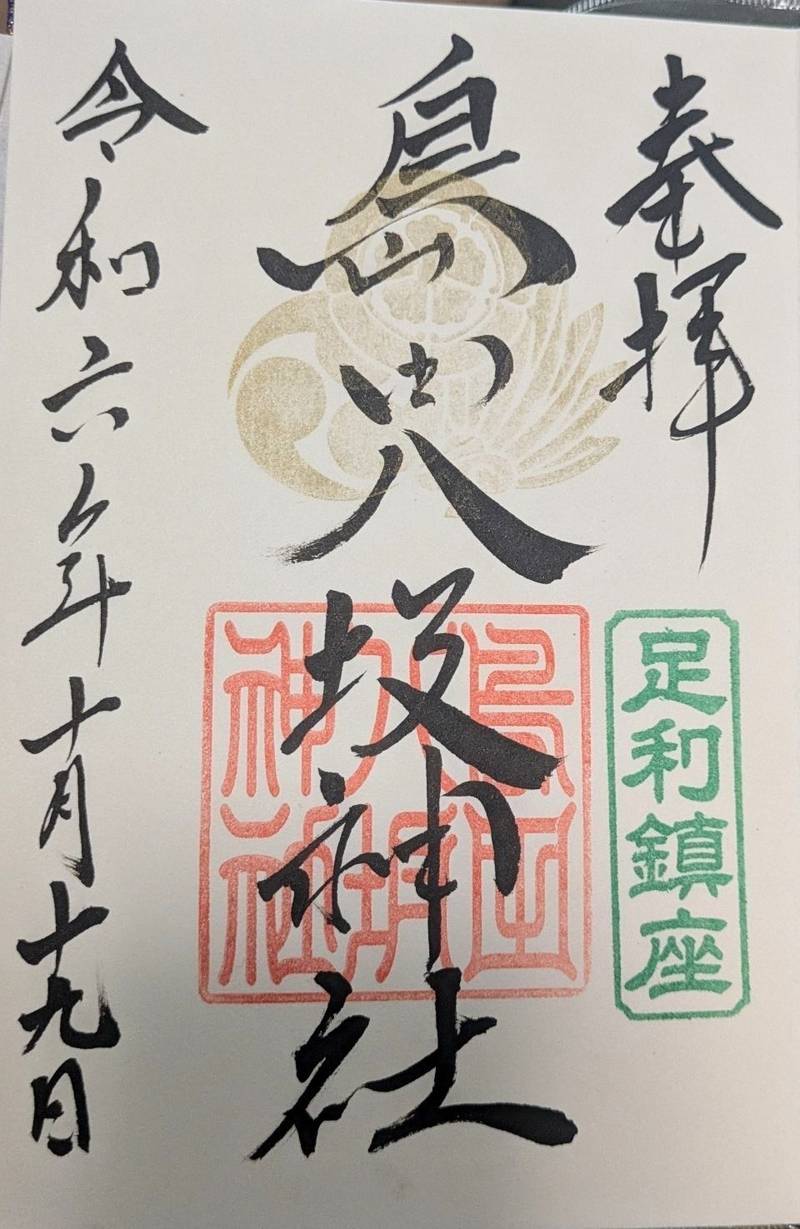 奉拝
足利鎮座
島田八坂神社
島田
八坂
神社
令和六年十月十九日